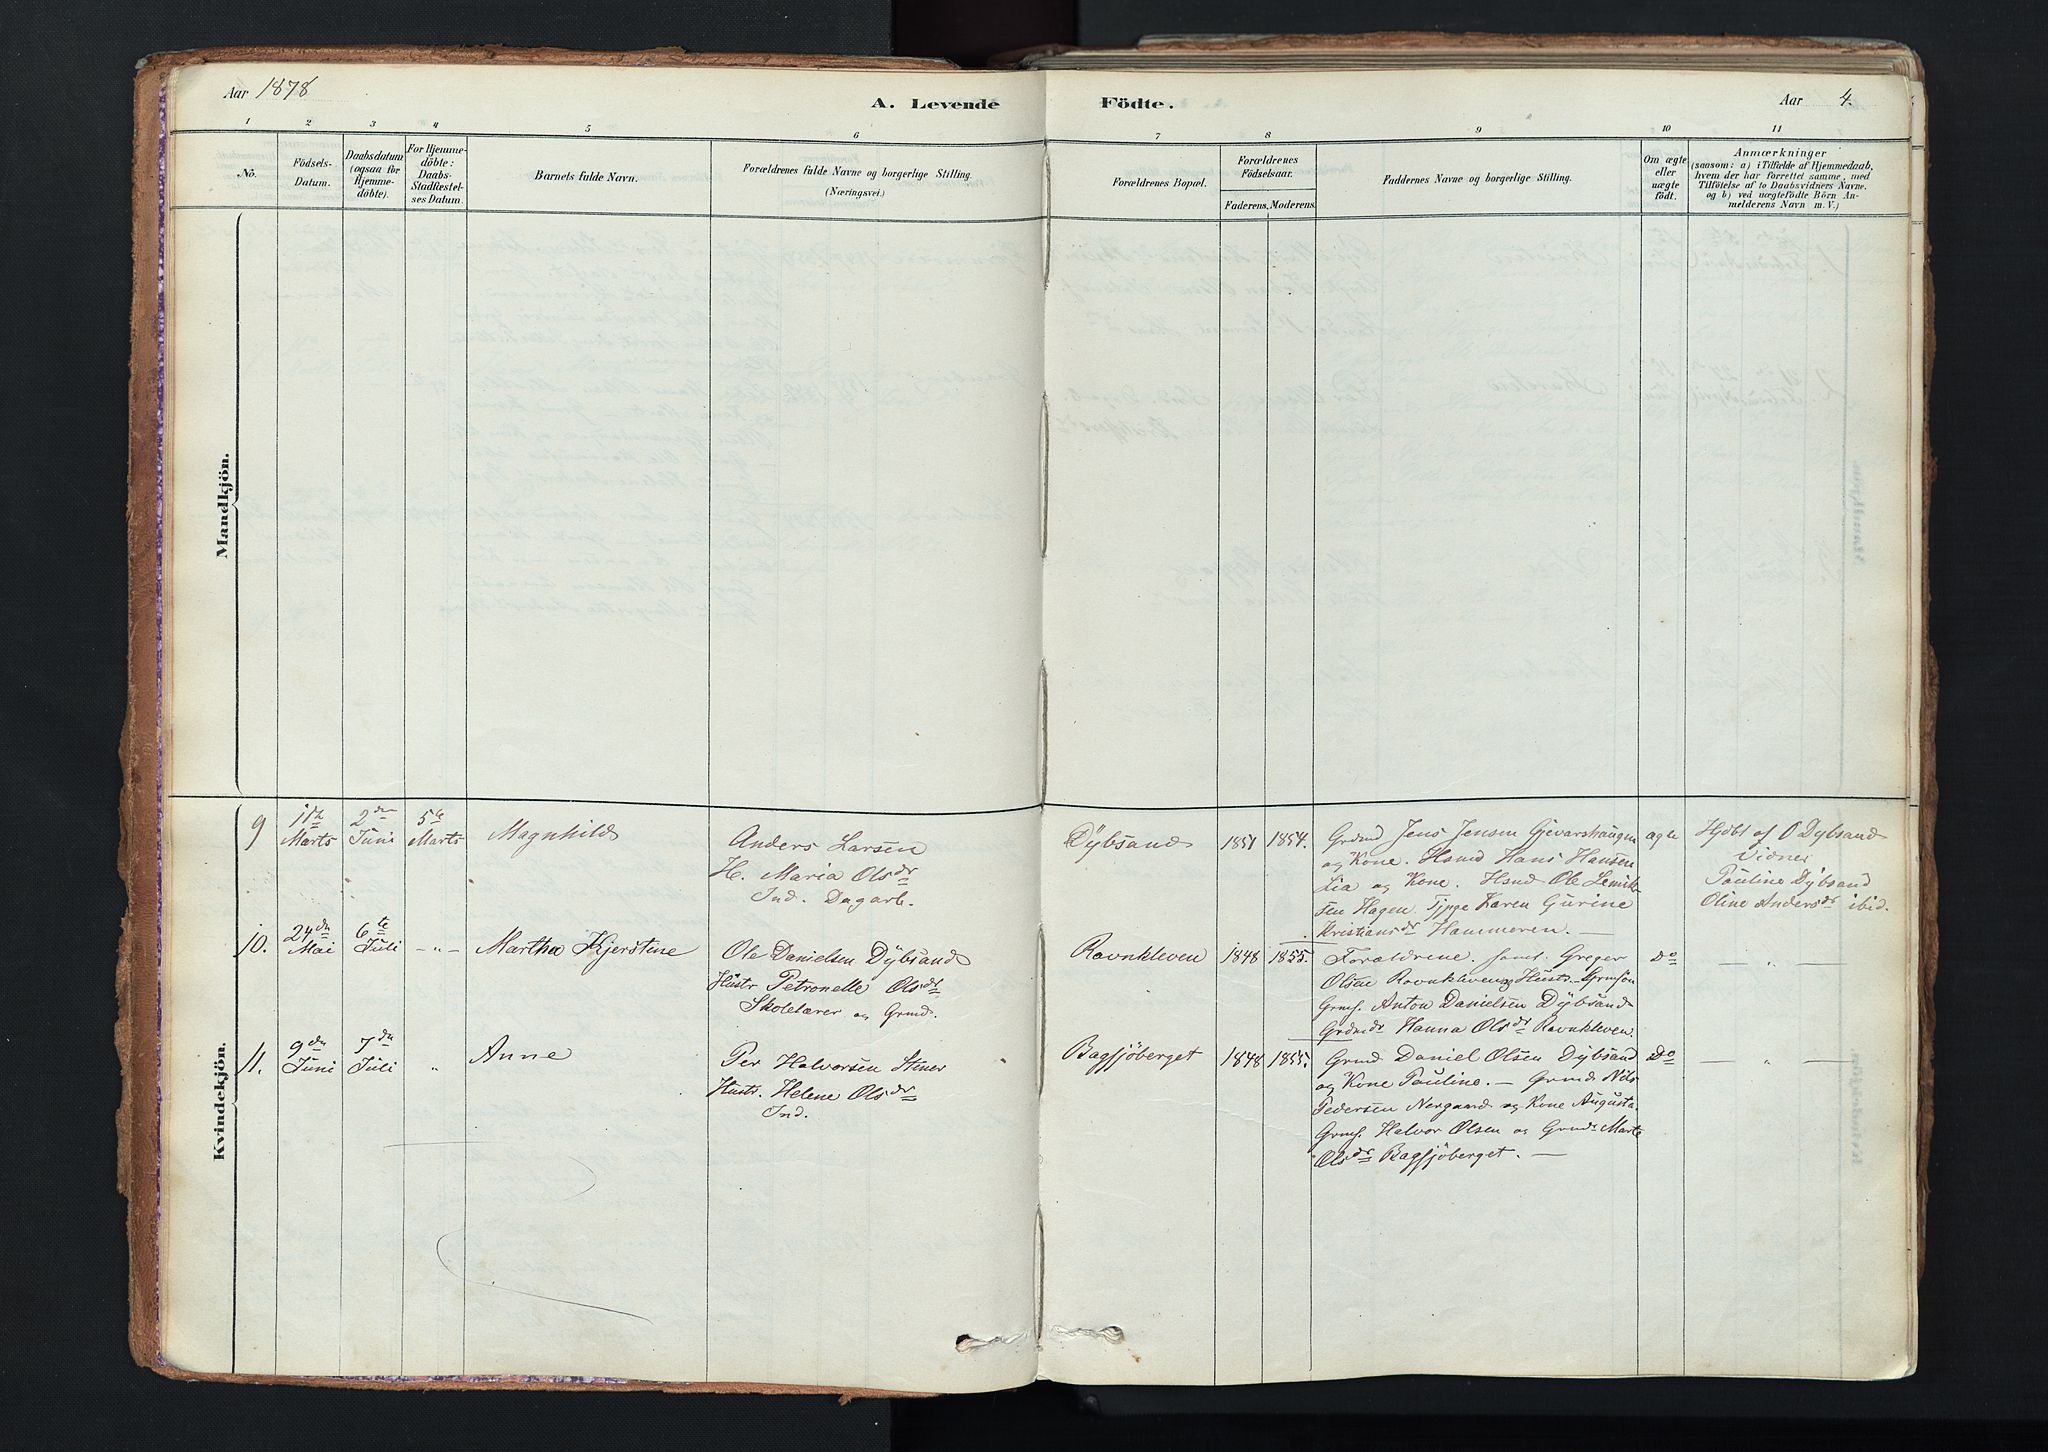 Aar 1878
A. Levende Födte.
Aar 4.
1 2 3 4 5 6 7 8 9 10 11
No.
Födsels-
Datum.
Daabsdatum
(ogsaa for
Hjemme-
döbte).
For Hjemme-
döbte:
Daabs-
Stadfæstel-
ses Datum.
Barnets fulde Navn.
Forældrenes fulde Navne og borgerlige Stilling.
(Næringsvei.)
Forældrenes Bopæl.
Forældrenes
Födselsaar.
Faderens. Moderens.
Faddernes Navne og borgerlige Stilling.
Om ægte
eller
uægte
födt.
Anmærkninger
(saasom: a) i Tilfælde af Hjemmedaab,
hvem der har forrettet samme, med
Tilföielse af to Daabsvidners Navne.
og b) ved uægtefödte Börn An-
melderens Navn m. V.)
Mandkjön.
Kvindekjön.
9
Marts
2den
Juni
5te
Marts
Magnhild
Anders Larsen
H. Maria Olsdr
Ind. Dagarb.
Dybsand
1851
1854.
Grdmd Jens Jensen Gjevarshaugen
og Kone. Hsmd Hans Hansen
Lia og Kone. Hsmd Ole Lemik-
sen Hagen. Tjpge Karen Gurine
Kristiansdr Hammeren. —
ægte
Hjdbt af O Dybsand
Vidner
Pauline Dybsand
Oline Andersdr ibid.
10.
24den
Mai
6te
Juli
— " —
Martha Kjerstine
Ole Danielsen Dybsand
Hustr Petronelle Olsdr
Skolelærer og Grmd.
Ravnkleven
1848
1855.
Forældrene. samt. Greger
Olsen Ravnkleven og Hustr. — Grmsön
Grms. Anton Danielsen Dybsand
Grdmdr Hanna Olsdr Ravnkleven.
Do
— " —
11.
9den
Juni
7de
Juli
"
Anne
Per Halvorsen Stener
Hustr. Helene Olsdr
Ind.
Bagsjöberget
1848
1855.
Grmd. Daniel Olsen Dybsand
og Kone Pauline. — Grmd. Nils
Pedersen Nergaard og Kone Augusta.
Grms. Halvor Olsen og Grmdr Marte
Olsdr Bagsjöberget. —
Do
— " —